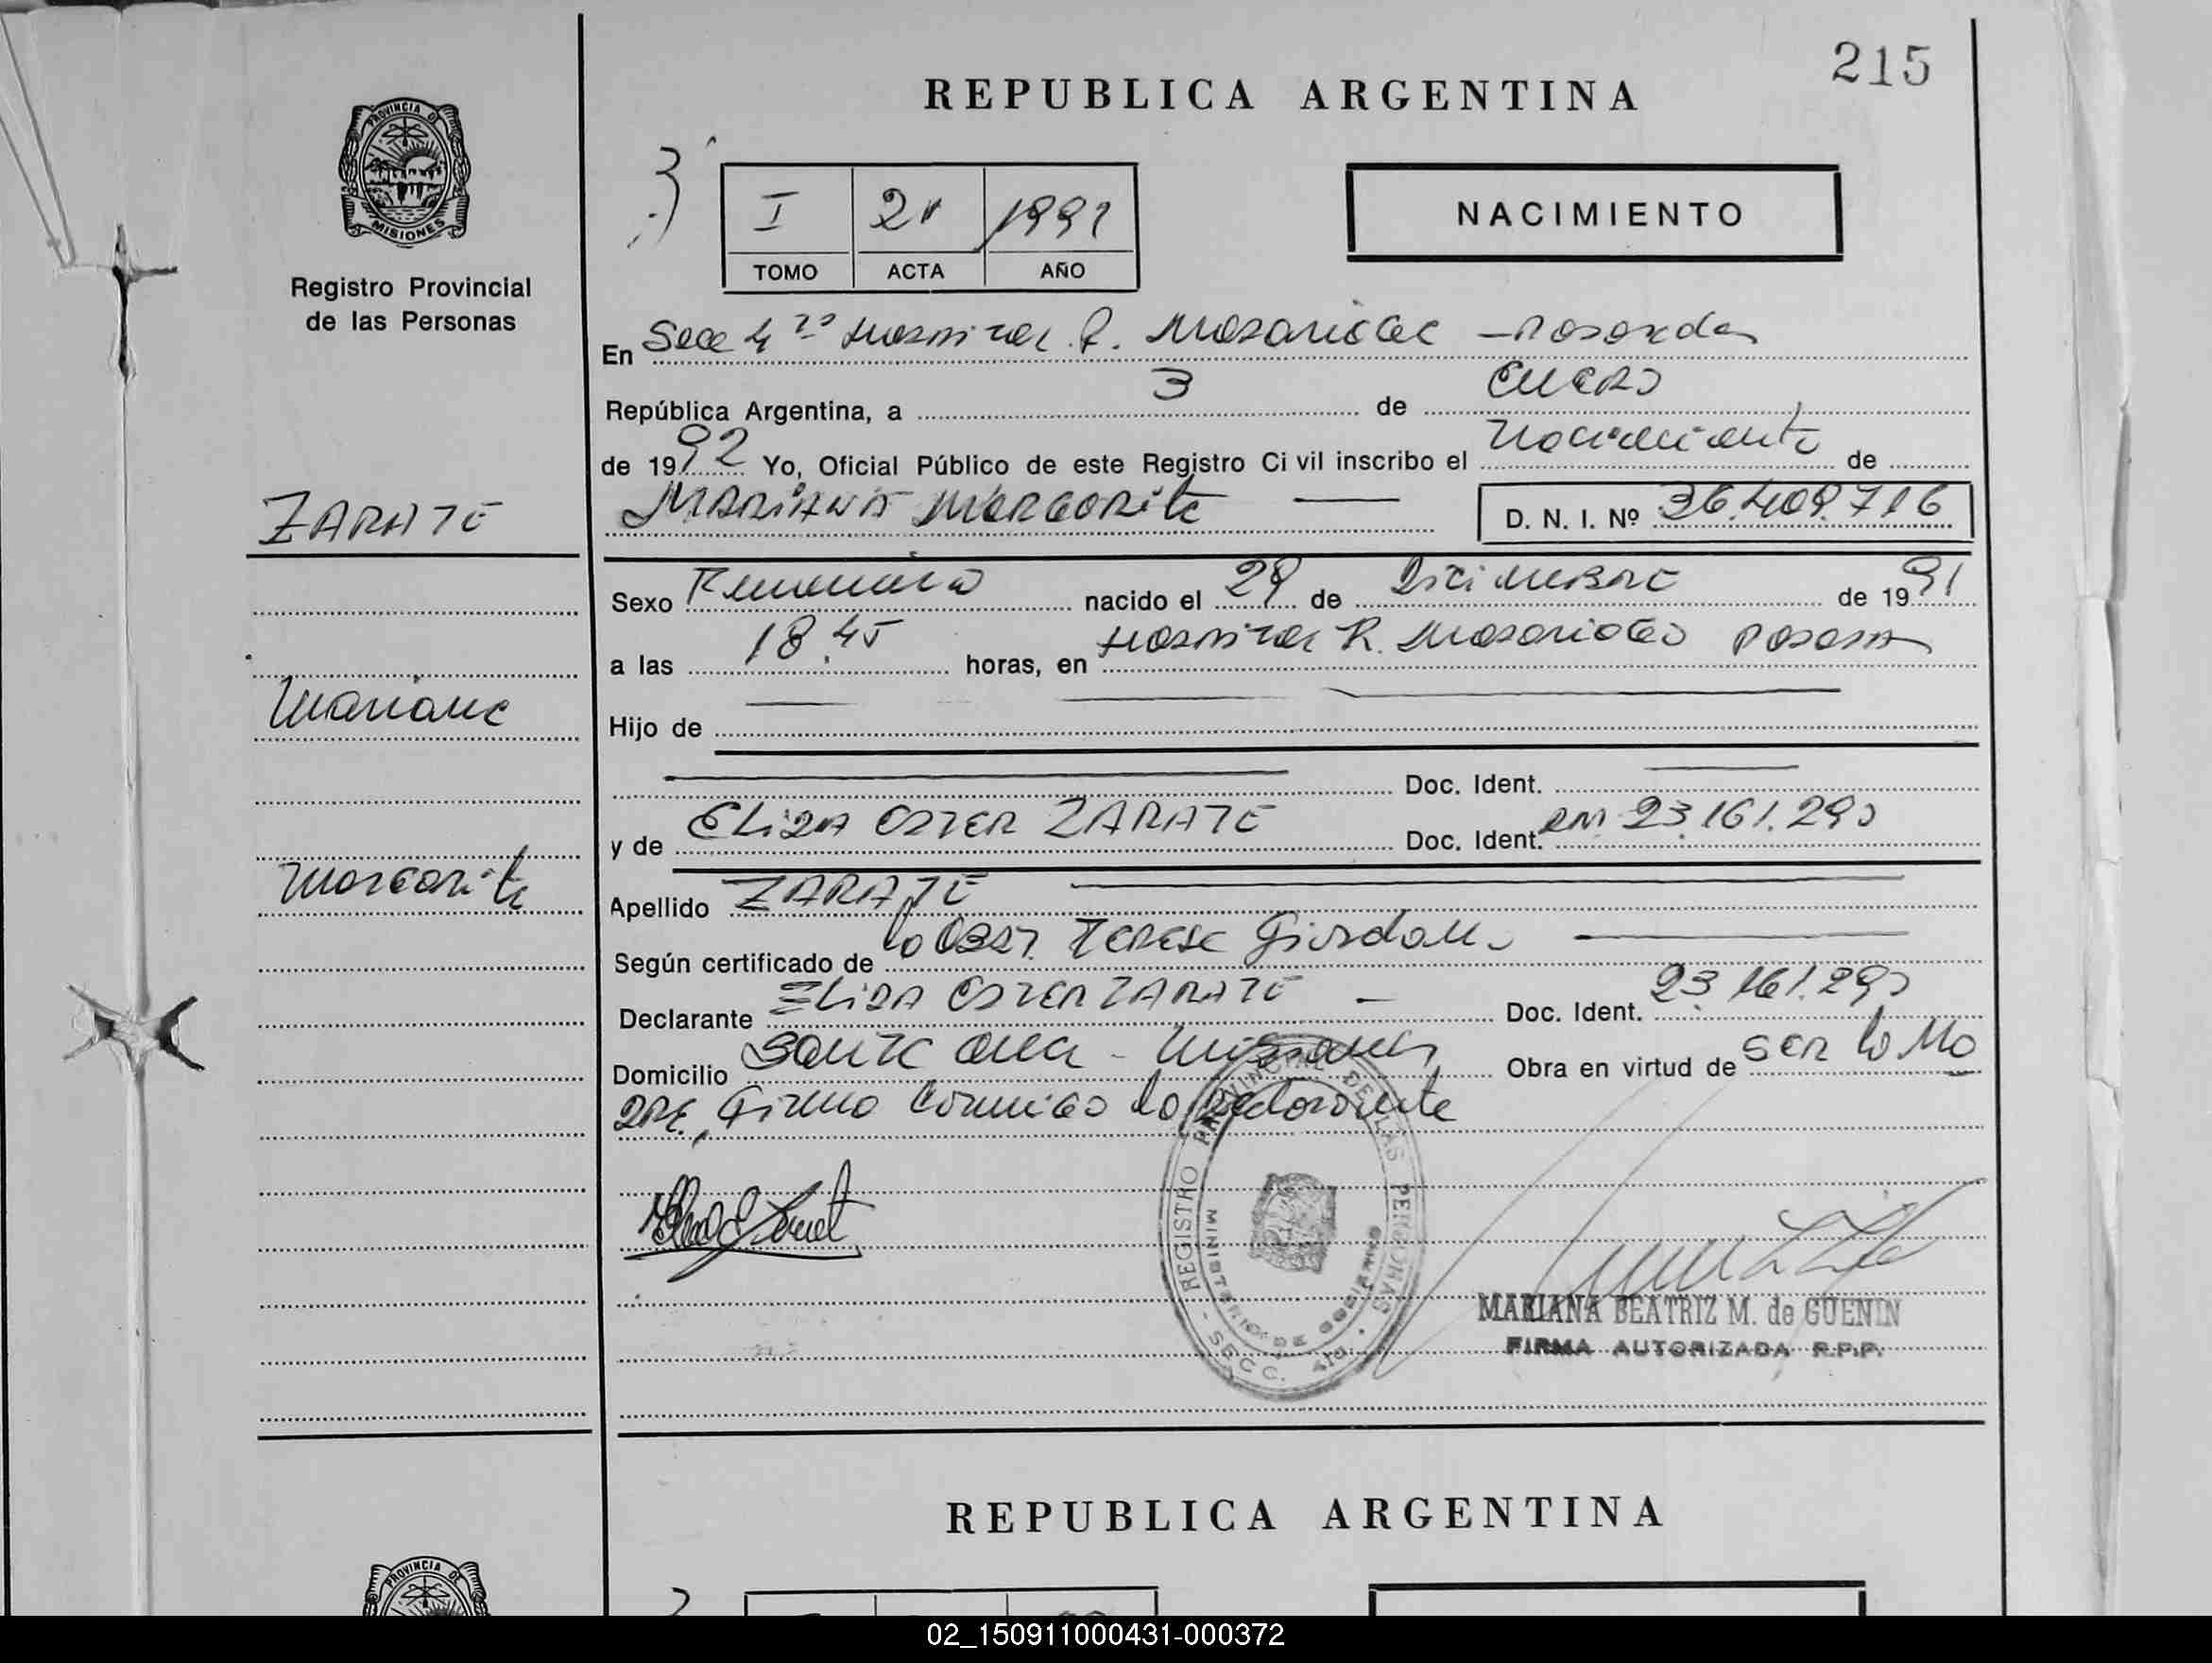 215
REPUBLICA ARGENTINA
PROVINCIA DE
MISIONES
Registro Provincial
de las Personas
I
TOMO ACTA AÑO
NACIMIENTO
En Secc 4ta Hospital R. Madariaga - Posadas
República Argentina, a 3 de Enero
de 1992 Yo, Oficial Público de este Registro Civil inscribo el Nacimiento de
ZARATE
MARIANA Margarita D. N. I. Nº 36.409.716
Sexo Femenino nacido el 29 de Diciembre de 1991
a las 18.45 horas, en Hospital R. Madariaga Posadas
Mariana
Hijo de
Doc. Ident.
y de Elida Ester ZARATE Doc. Ident. DNI 23.161.290
Margarita
Apellido ZARATE
Según certificado de la Obst. Teresa Giordano
Declarante Elida Ester ZARATE Doc. Ident. 23.161.290
Domicilio Santa Ana - Misiones Obra en virtud de ser la Ma
dre, Firma conmigo la declarante
REGISTRO PROVINCIAL DE LAS PERSONAS
MINISTERIO DE GOBIERNO
SECC. 4ta
MARIANA BEATRIZ M. de GUENIN
FIRMA AUTORIZADA R.P.P.
REPUBLICA ARGENTINA
PROVINCIA DE
02_150911000431-000372